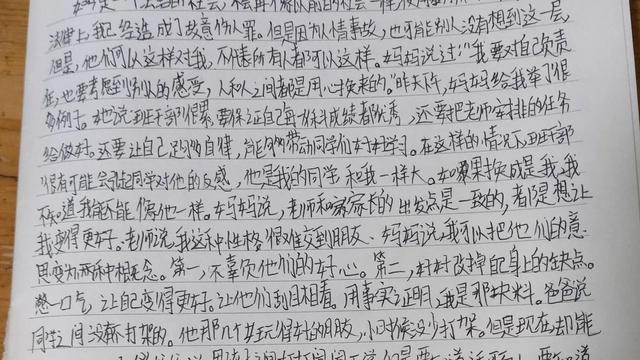 妈妈是一个法治的社会,
法律上我已经造成了故意伤人罪。但是因为人情事故,也可能别人没有想到这一层
但是,他们可以这样对我,不代表所有人都可以这样。妈妈说过:"我要对自己负责
任,也要考虑到别人的感受,人和人之间都是用心换来的。"昨天下午,妈妈给我举了很
多例子。她说班干部很累,要保证自己每一科成绩都优秀,还要把老师安排的任务
给做好。还要让自己足够自律,能够带动同学们好好学习。在这样的情况下班干部
很有可能会引起同学对他的反感,他是我的同学和我一样大。如果换成是我,我
不知道我能不能像他一样。妈妈说,老师和家长的出发点是一致的,都是想让
我变得更好。老师说,我这种性格很难交到朋友、妈妈说,我可以把他们的意
思变为两种中相观念。第一,不辜负他们的好心。第二,好好改掉自身上的缺点。
憋一口气,让自己变得更好。让他们刮目相看。用事实证明,我是那块料。爸爸说
同学之间没有不打架的。他那几个好玩得好的朋友,小时候没少打架。但是现在却能